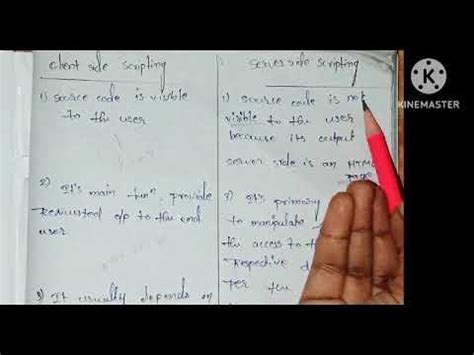 client side scripting
1) source code is visible
to the user
2) It's main fun", provide
requested o/p to the end
user
3) It usually depends on
server side scripting
1) source code is not
visible to the user
because its output
server side is an HTML
page
2) It's primary
to manipulate
the access to the
respective d
per the
KINEMASTER